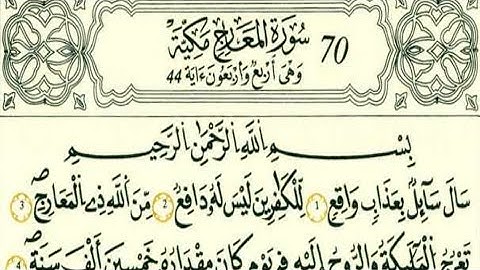 70 سُورَةُ الْمَعَارِجِ مَكِّيَّةٌ
وَهِىَ أَرْبَعٌ وَأَرْبَعُونَ ءَايَةً 44
بِسْمِ اِللَّهِ اِلرَّحْمَٰنِ اِلرَّحِيمِ
سَالَ سَآئِلٌۢ بِعَذَابٖ وَاقِعٖ 1 لِّلْكَٰفِرِينَ لَيْسَ لَهُۥ دَافِعٞ 2 مِّنَ اَللَّهِ ذِے اِلْمَعَارِجِ 3
تَعْرُجُ اُلْمَلَٰٓئِكَةُ وَالرُّوحُ إِلَيْهِ فِے يَوْمٖ كَانَ مِقْدَارُهُۥ خَمْسِينَ أَلْفَ سَنَةٖ 4